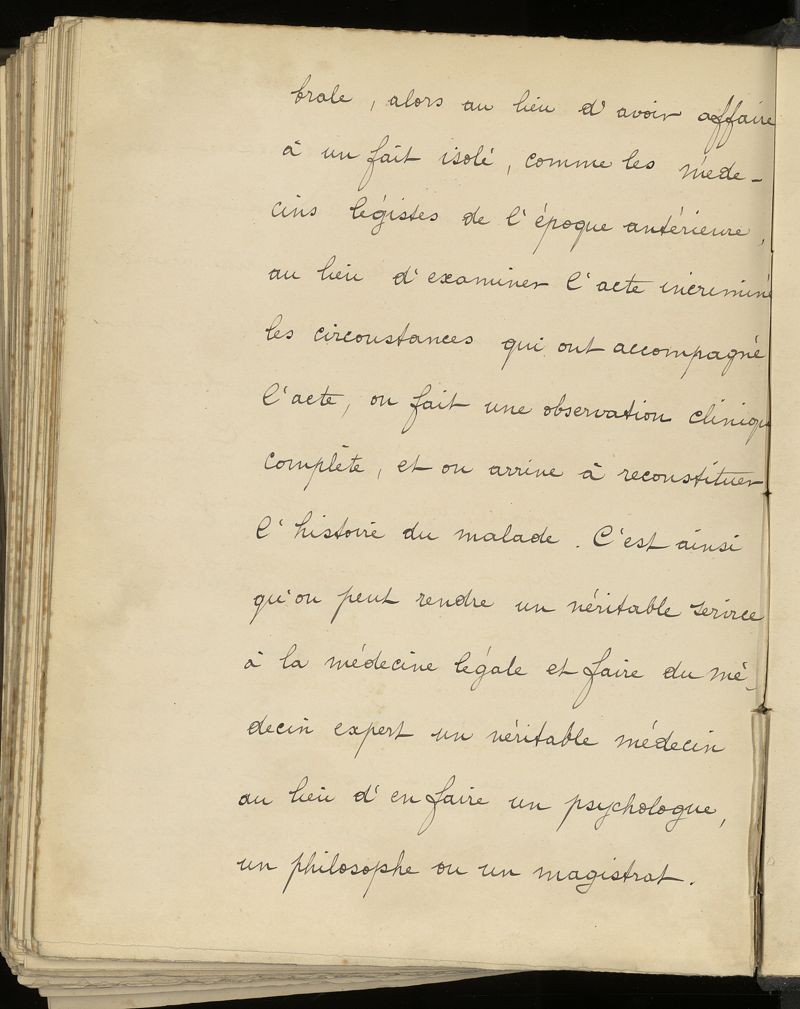 brale, alors au lieu d'avoir affaire
à un fait isolé, comme les méde-
cins légistes de l'époque antérieure,
au lieu d'examiner l'acte incriminé
les circonstances qui ont accompagné
l'acte, on fait une observation clinique
complète, et on arrive à reconstituer
l'histoire du malade. C'est ainsi
qu'on peut rendre un véritable service
à la médecine légale et faire du mé-
decin expert un véritable médecin
au lieu d'en faire un psychologue,
un philosophe ou un magistrat.